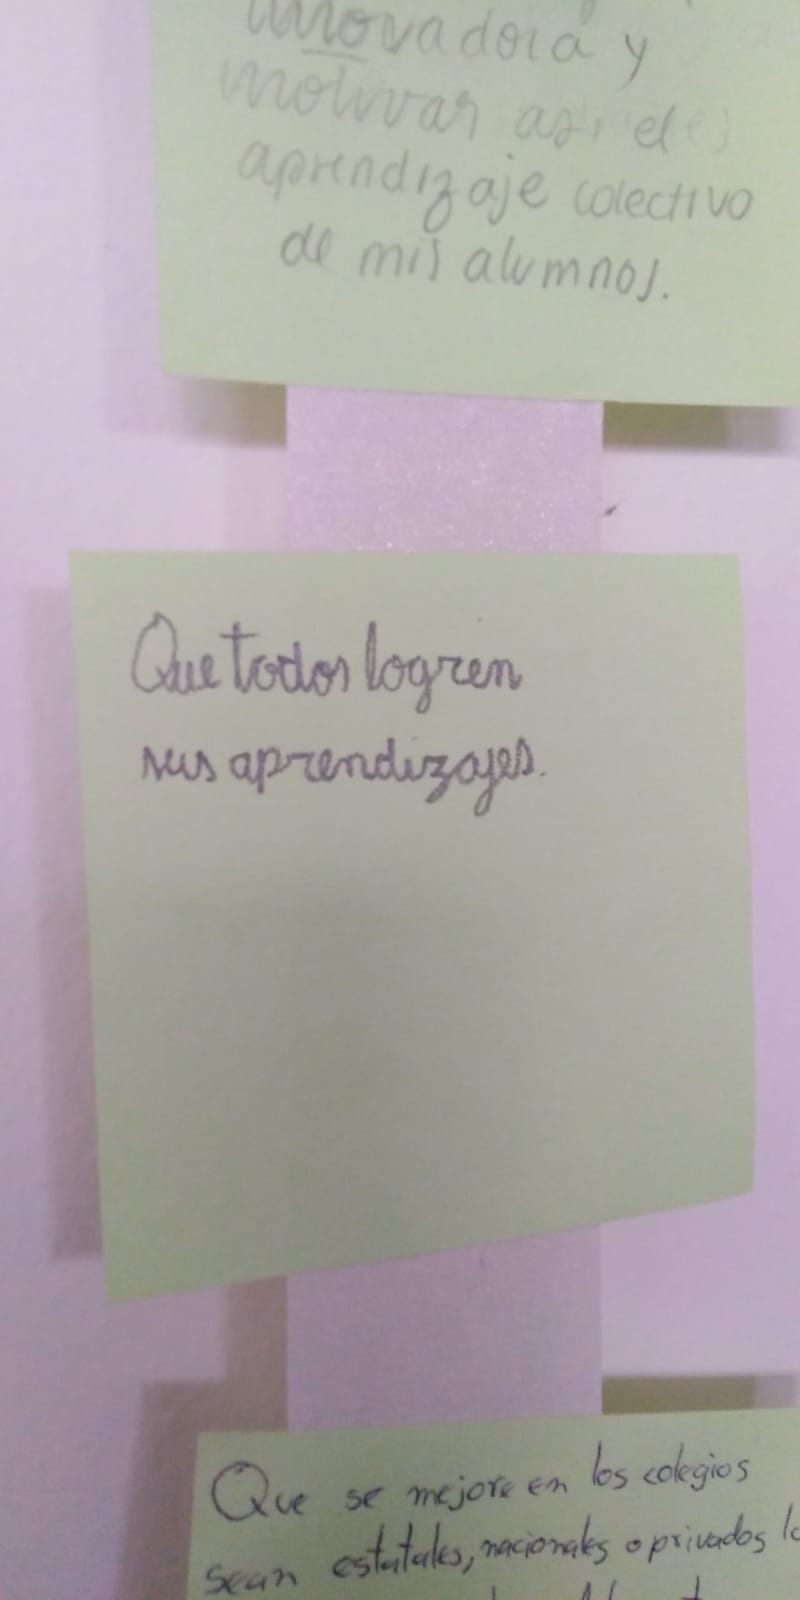 innovadora y
motivar así el
aprendizaje colectivo
de mis alumnos.
Que todos logren
sus aprendizajes.
Que se mejore en los colegios
sean estatales, nacionales o privados